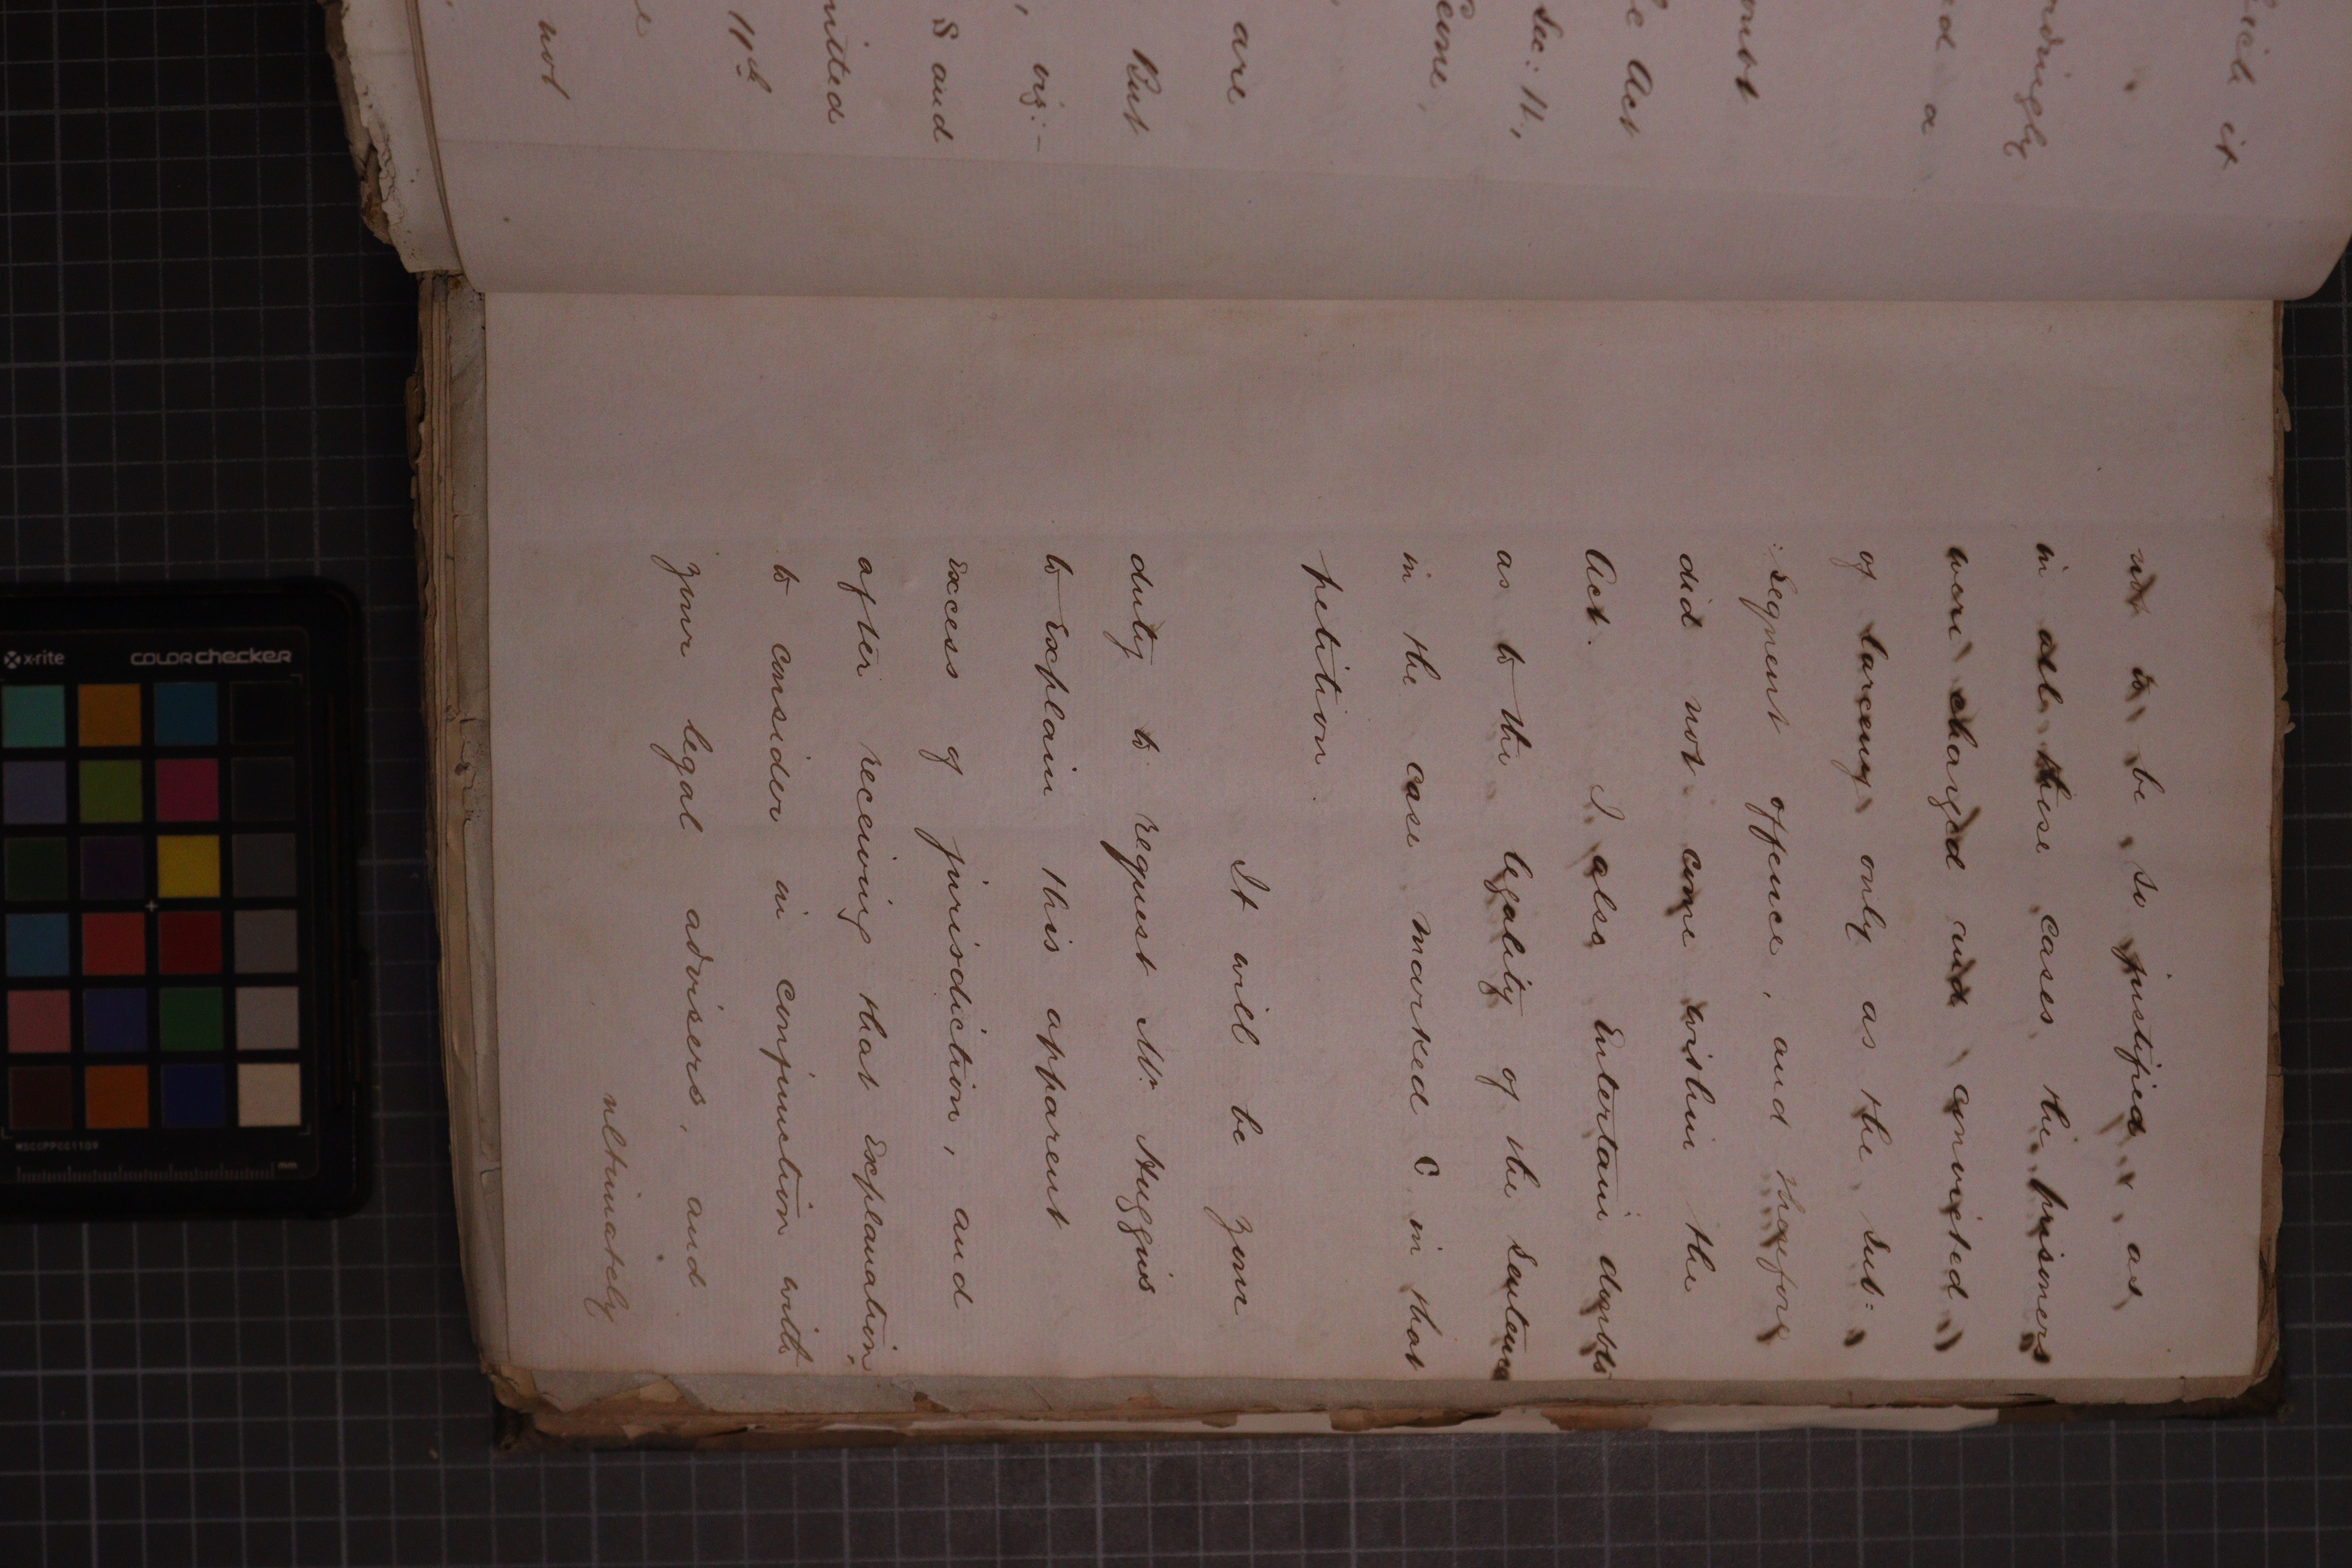 not to be so justified, as
in all these cases the prisoners
were charged and convicted
of larceny only as the sub:
:sequent offence, and therefore
did not come within the
Act. I also Entertain doubts
as to the legality of the Sentence
in the case marked C in that
petition.
It will be your
duty to request Mr. Huggins
to Explain this apparent
Excess of jurisdiction, and
after receiving that Explanation,
to consider in conjunction with
your legal advisers, and
ultimately
which it
ordingly
ed a
not
e Act
Sec: 11,
are
But
, viz:-
S and
mitted
11th
not
x-rite
COLORchecker
MSCCPPCC1109
mm